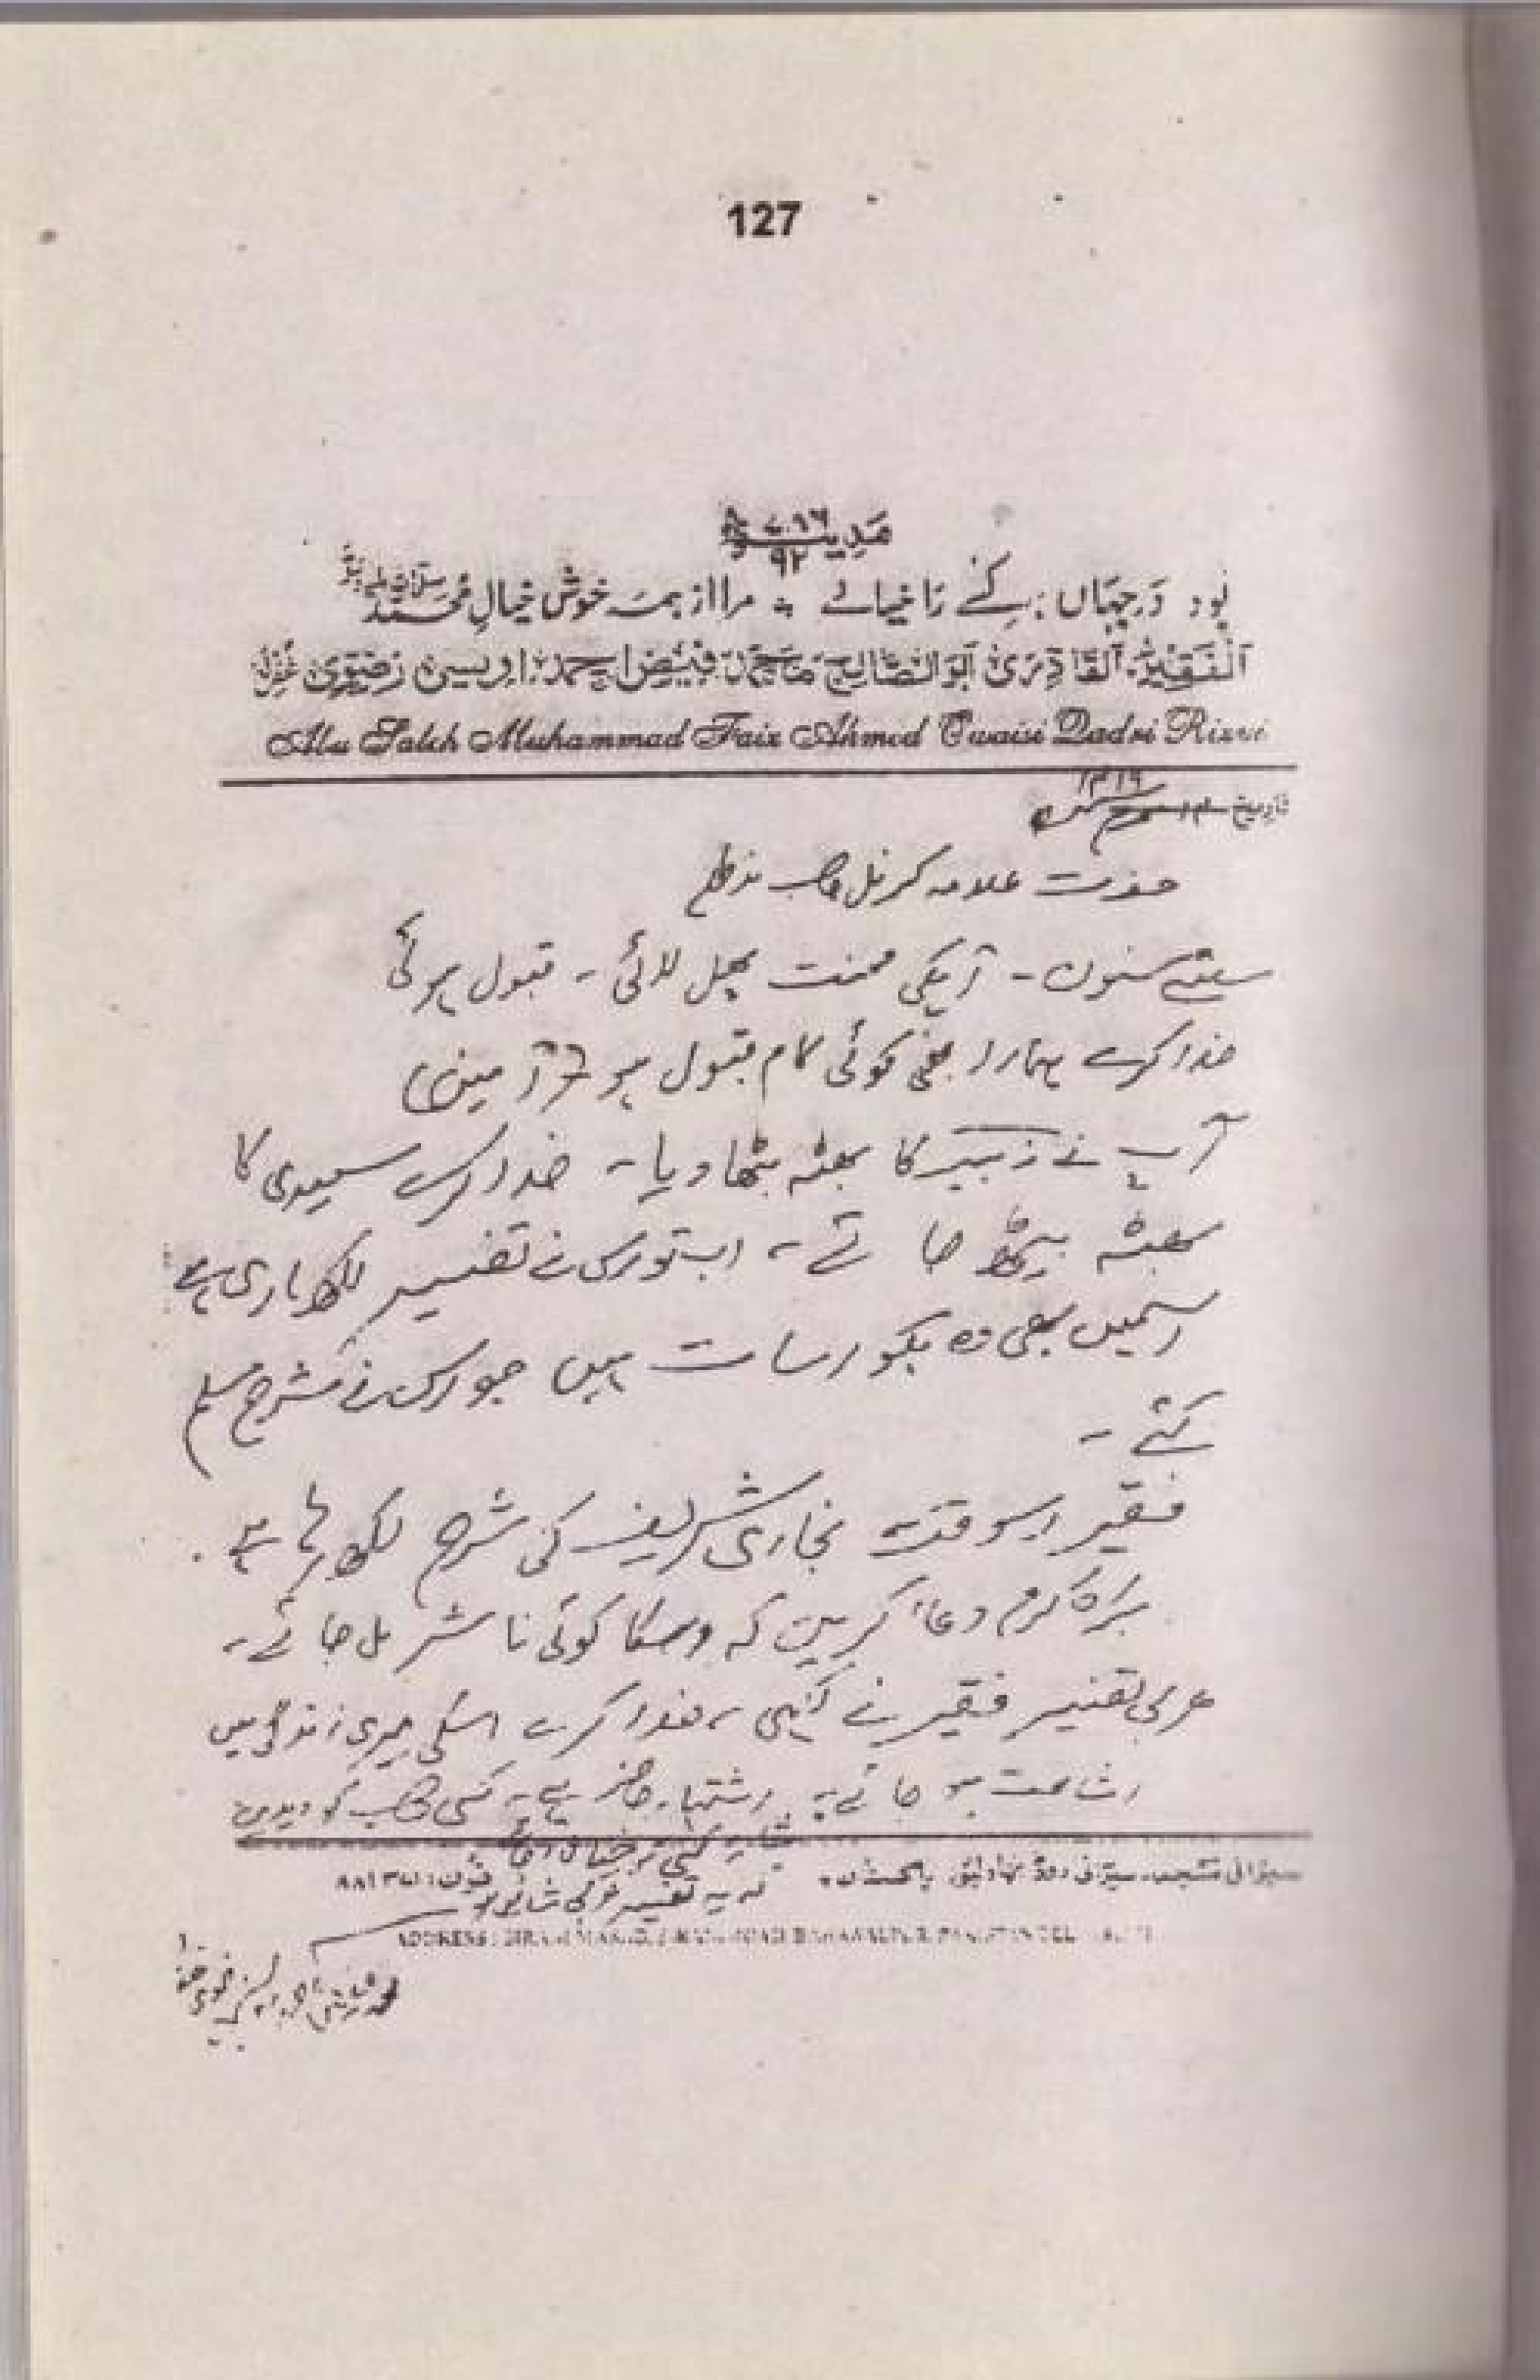 127
مدینہ
۷۸۶
۹۲
بود در جہاں ہر کسے را خیالے ÷ مرا از ہمہ خوش خیالِ محمد صلی اللہ علیہ وسلم
الفقیر القادری ابو الصالح محمد فیض احمد اویسی رضوی غفرلہ
Abu Saleh Muhammad Faiz Ahmed Owaisi Qadri Rizvi
تاریخ
حضرت علامہ کرنل صاحب مدظلہ
مسنون - آپکی محنت پھل لائی - قبول ہوگئی
خدا کرے ہمارا بھی کوئی کام قبول ہو (آمین)
آپ نے زبیر کا بھٹہ بٹھا دیا - خدا کرے سعیدی کا
بھٹہ بیٹھ جائے - اب تو اس نے تفسیر لکھ ماری ہے
اسمیں بھی وہ بکواسات ہیں جو اس نے شرح مسلم
کئے -
فقیر اسوقت بخاری شریف کی شرح لکھ رہا ہے
براہ کرم دعاء کریں کہ اسکا کوئی ناشر مل جائے -
عربی تفسیر فقیر نے لکھی ، خدا کرے اسکی میری زندگی میں
اشاعت ہو جائے - اشتہار حاضر ہے - کسی صاحب کو دیدیں
شاید کسی
سیرانی مسجد، سیرانی روڈ بہاولپور پاکستان
فون: ۸۸۱۳۷۱
کہ یہ تفسیر عربی شائع ہو
ADDRESS: SIRANI MASJID, SIRANI ROAD BAHAWALPUR, PAKISTAN TEL